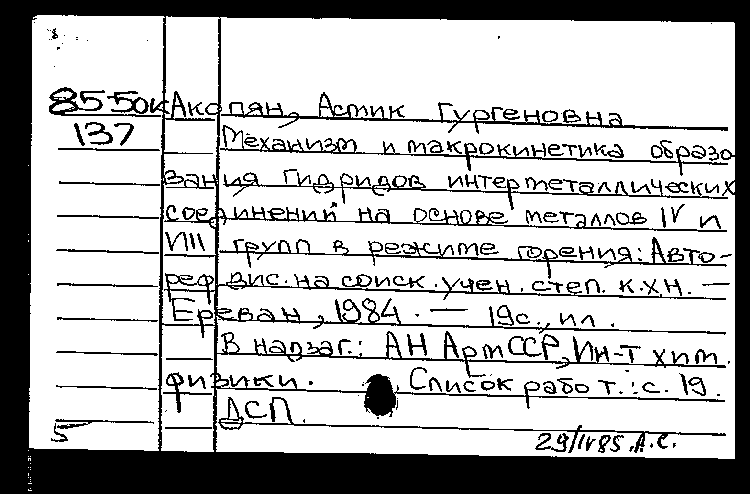 85-50к Акопян, Астик Гургеновна
137 Механизм и макрокинетика образо
вания гидридов интерметаллических
соединений на основе металлов IV и
VIII групп в режиме горения: Авто-
реф дис. на соиск. учен. степ. к.х.н. —
Ереван, 1984. — 19с., ил.
В надзаг.: АН АрмССР, Ин-т хим.
физики. Список работ.: с. 19.
ДСП.
5 29/IV85. А.С.